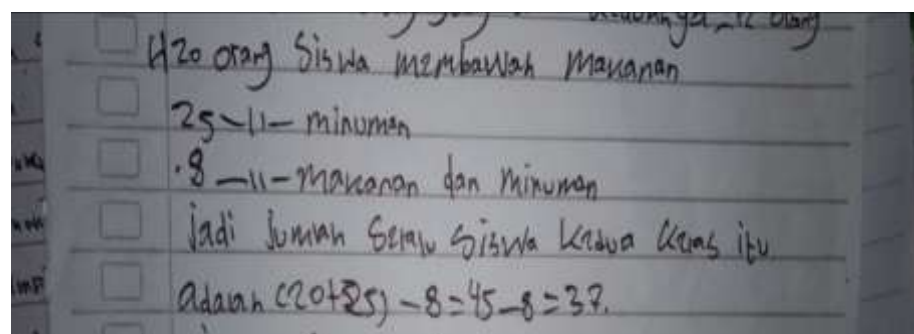 12 orang
4) 20 orang siswa membawah makanan
25 -11- minuman
.8 -11- makanan dan minuman
jadi jumlah siswa kedua kelas itu
adalah (20+25) -8=45-8=37.